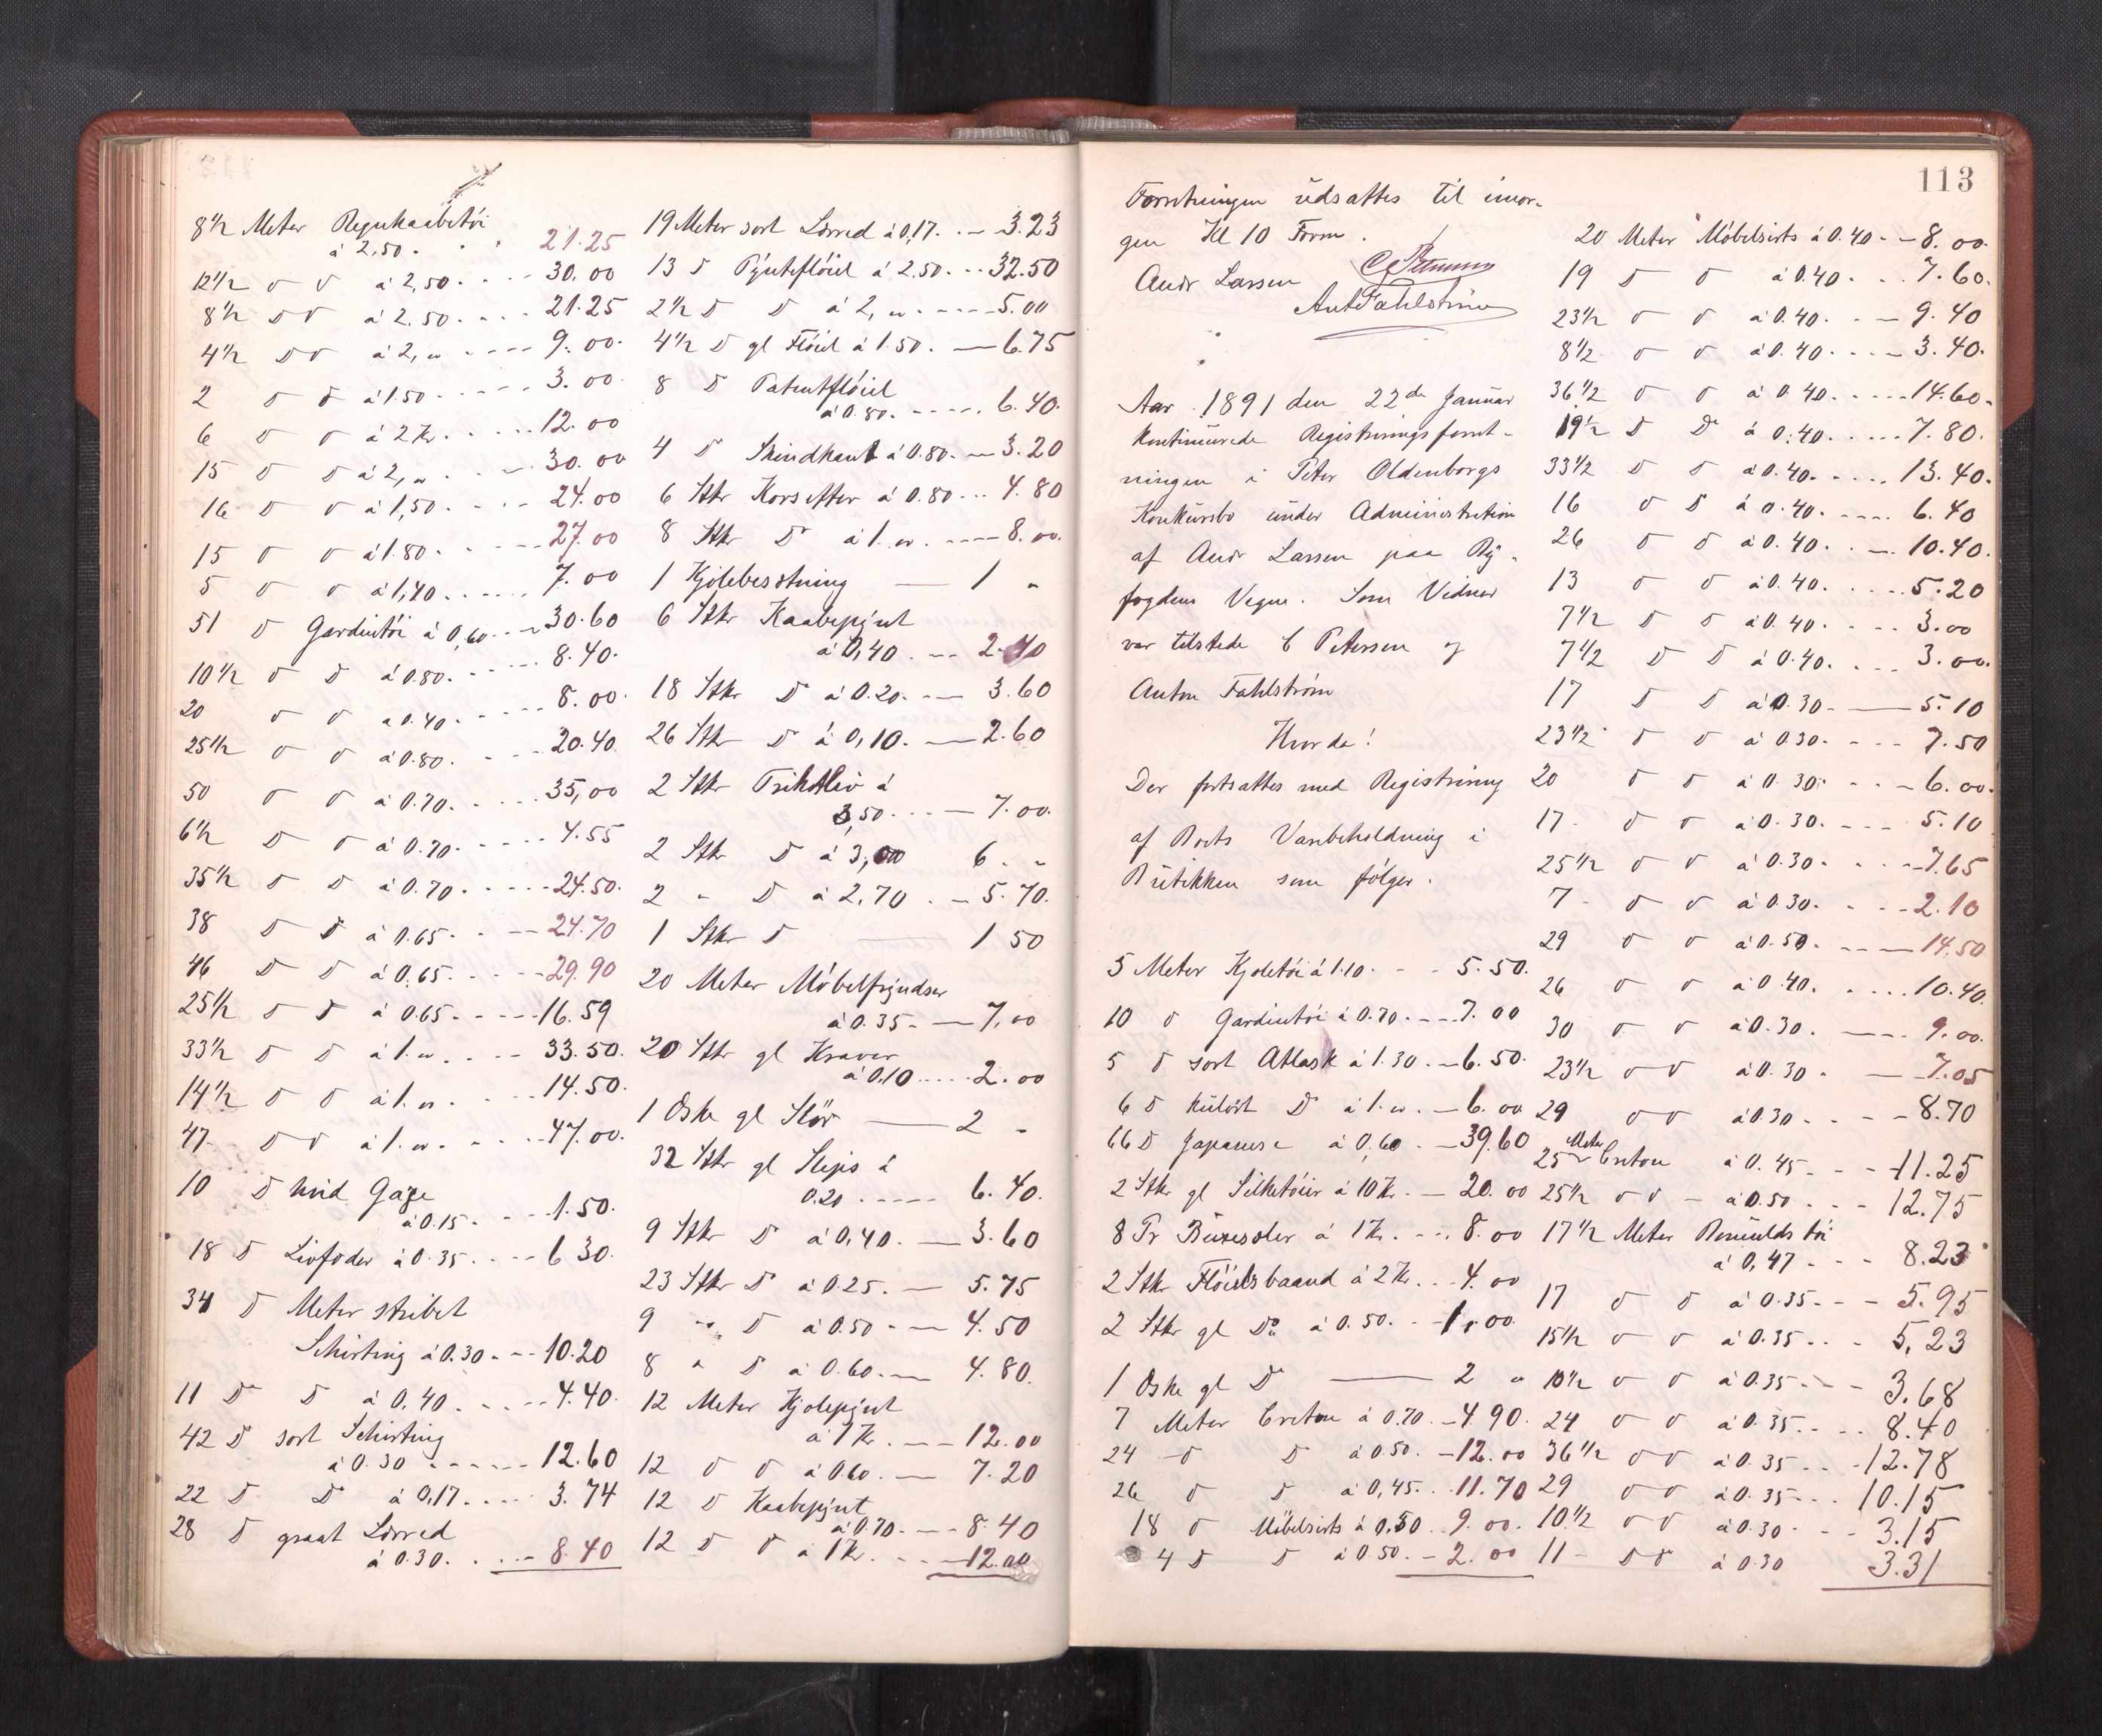 8 1/2 Meter Regnkaabetöi
à 2,50. 21.25
12 1/2 D D à 2,50. 30,00
8 1/2 D D à 2.50. 21.25
4 1/2 D D à 2, " 9.00.
2 D D à 1.50 3.00
6 D D à 2 Kr. 12.00
15 D D à 2, " 30.00
16 D D à 1,50. 24.00
15 D D à 1.80. 27.00
5 D D à 1,40. 7.00
51 D Gardintöi à 0,60. 30.60
10 1/2 D D à 0.80. 8.40.
20 D D à 0.40. 8.00.
25 1/2 D D à 0.80. 20.40.
50 D D à 0.70. 35,00
6 1/2 D D à 0.70. 4.55
35 1/2 D D à 0.70. 24.50.
38 D D à 0.65. 24.70
46 D D à 0.65. 29.90
25 1/2 D D à 0.65. 16.59
33 1/2 D D à 1. " 33.50.
14 1/2 D D à 1. " 14.50.
47 D D à 1. " 47.00.
10 D hvid Gaze
à 0.15. 1.50.
18 D Livfoder à 0.35. 6 30.
34 D Meter stribet
Schirting à 0.30. 10.20
11 D D à 0,40. 4.40.
42 D sort Schirting
à 0.30 12.60
22 D D à 0,17. 3.74
28 D graat Lörred
à 0.30. 8.40
19 Meter sort Lörred à 0,17. 3.23
13 D Pynteflöiel à 2,50. 32.50
2 1/2 D D à 2, " 5.00
4 1/2 D gl Flöiel à 1.50. 6.75
8 D Patentflöiel
à 0.80. 6.40.
4 D Skindkant à 0.80. 3.20
6 Stkr Korsetter à 0.80 4.80
8 Stkr D à 1. " 8.00.
1 Kjolebesetning 1 "
6 Stkr Kaabepynt
à 0,40. 2.40
18 Stkr D à 0.20. 3.60
26 Stkr D à 0,10. 2.60
2 Stkr Trikotliv à
3,50. 7.00.
2 Stkr D à 3,00 6. "
2 " D à 2,70 5.70.
1 Stkr D 1 50
20 Meter Möbelfryndser
à 0.35. 7,00
20 Stkr gl Kraver
à 0,10 2.00
1 Øske gl Slör 2 "
32 Stkr gl Slips à
0.20 6.40.
9 Stkr D à 0,40. 3.60
23 Stkr D à 0.25. 5.75
9 " D à 0.50 4.50
8 " D à 0.60. 4.80.
12 Meter Kjolepynt
à 1 Kr. 12.00
12 D D à 0.60. 7.20
12 D Kaabepynt
à 0.70. 8.40
12 D D à 1 Kr. 12.00
113
Forretningen udsattes til imor-
gen Kl 10 Form.
Andr Larsen C Petersen
Ant Fahlström
Aar 1891 den 22de Januar
kontinuerede Registreringsforret-
ningen i Peter Oldenborgs
Konkursbo under Administration
af Andr Larsen paa By-
fogdens Vegne. Som Vidner
var tilstede C Petersen og
Anton Fahlström
Hvorda!
Der fortsattes med Registrering
af Boets Varebeholdning i
Butikken som fölger.
5 Meter Kjoletöi à 1.10. 5.50.
10 D Gardintöi à 0.70. 7.00
5 D sort Atlask à 1.30. 6.50.
6 D kulört D à 1. " 6.00
66 D Japanese à 0,60. 39.60
2 Stkr gl Silketöier à 10 Kr. 20.00
8 Pr Buxesöler à 1 Kr. 8.00
2 Stkr Flöielsbaand à 2 Kr. 4.00
2 Stkr gl Do à 0.50. 1.00
1 Øske gl D 2 "
7 Meter Creton à 0.70. 4.90.
24 D D à 0.50. 12.00
26 D D à 0,45. 11.70
18 D Möbelsirts à 0,50 9.00.
4 D D à 0.50. 2.00
20 Meter Möbelsirts à 0.40. 8.00.
19 D D à 0.40. 7.60.
23 1/2 D D à 0.40. 9.40
8 1/2 D D à 0.40. 3.40.
36 1/2 D D à 0.40. 14.60.
19 1/2 D D à 0.40. 7.80.
33 1/2 D D à 0.40. 13.40.
16 D D à 0.40. 6.40
26 D D à 0.40. 10.40.
13 D D à 0.40. 5.20
7 1/2 D D à 0.40. 3.00
7 1/2 D D à 0.40. 3.00.
17 D D à 0.30. 5.10
23 1/2 D D à 0.30. 7.50
20 D D à 0.30. 6.00.
17 D D à 0.30. 5.10
25 1/2 D D à 0.30. 7.65
7 D D à 0.30. 2.10
29 D D à 0.50. 14.50
26 D D à 0.40. 10.40.
30 D D à 0.30. 9.00.
23 1/2 D D à 0.30. 7.05
29 D D à 0.30 8.70
25 Meter Creton à 0.45. 11.25
25 1/2 D D à 0.50 12.75
17 1/2 Meter Bomulds töi
à 0,47 8.23
17 D D à 0.35. 5.95
15 1/2 D D à 0.35. 5,23
10 1/2 D D à 0.35. 3.68
24 D D à 0.35. 8.40
36 1/2 D D à 0.35. 12.78
29 D D à 0.35. 10.15
10 1/2 D D à 0.30. 3.15
11 D D à 0.30 3.31